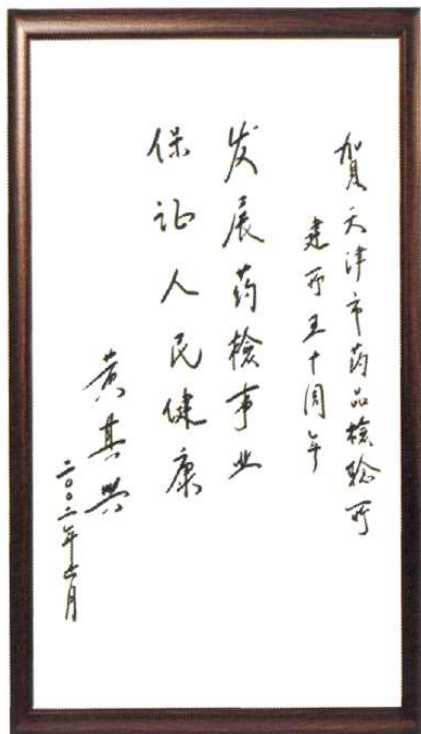 賀天津市药品檢验所
建所五十周年
发展药檢事业
保证人民健康
黄其兴
二00二年七月